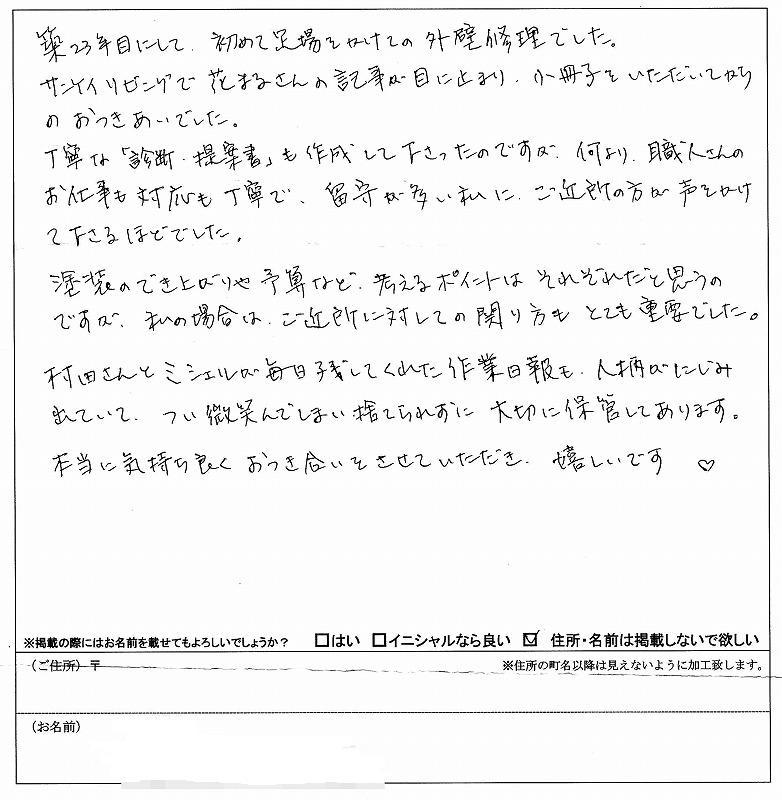 築23年目にして、初めて足場をかけての外壁修理でした。
サンケイリビングで花まるさんの記事が目に止まり、小冊子をいただいてから
のおつきあいでした。
丁寧な「診断・提案書」も作成して下さったのですが、何より、職人さんの
お仕事も対応も丁寧で、留守が多い私に、ご近所の方が声をかけ
て下さるほどでした。
塗装のでき上がりや予算など、考えるポイントはそれぞれだと思うの
ですが、私の場合は、ご近所に対しての関り方もとても重要でした。
村田さんとミシェルが毎日残してくれた作業日報も、人柄がにじみ
出ていて、つい微笑んでしまい捨てられずに大切に保管してあります。
本当に気持ち良くおつき合いをさせていただき、嬉しいです ♡
※掲載の際にはお名前を載せてもよろしいでしょうか? □はい □イニシャルなら良い ☑ 住所・名前は掲載しないで欲しい
（ご住所）〒 ※住所の町名以降は見えないように加工致します。
（お名前）